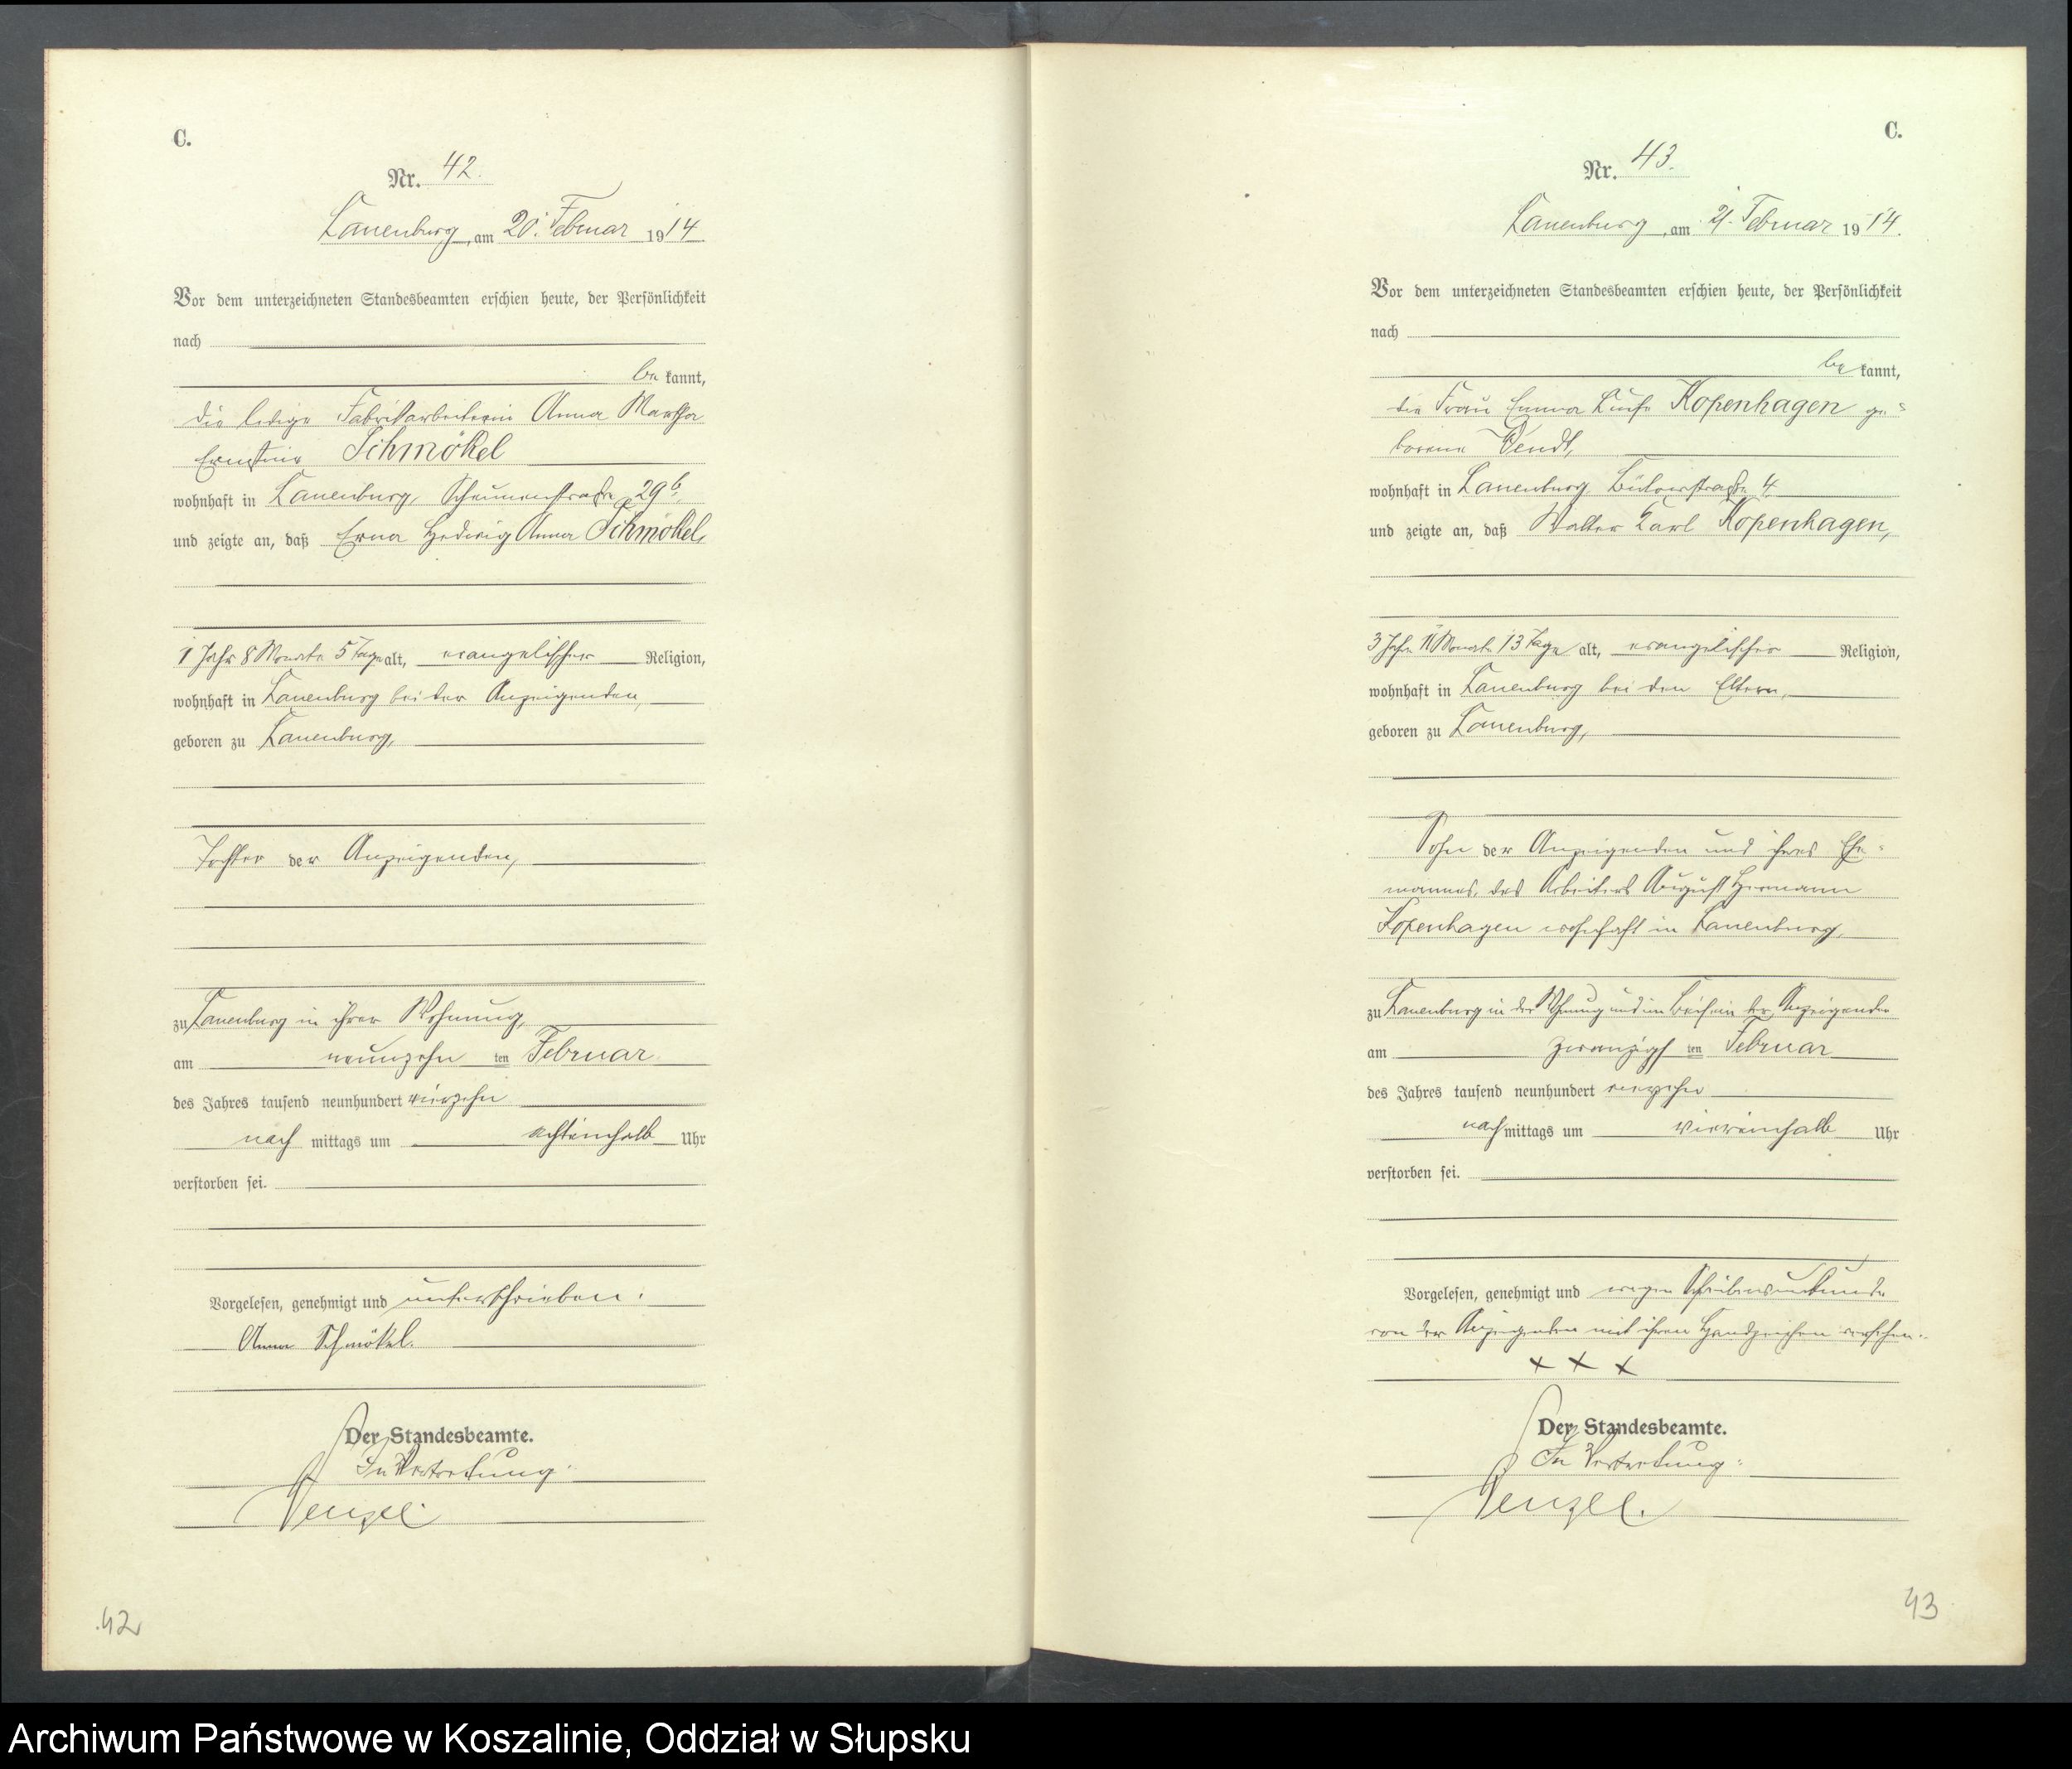 C.
Nr. 42.
Lauenburg, am 20. Februar 1914.
Vor dem unterzeichneten Standesbeamten erschien heute, der Persönlichkeit
nach
be kannt,
die ledige Fabrikarbeiterin Anna Martha
Ernstine Schmökel
wohnhaft in Lauenburg, Scheunenstraße 29b,
und zeigte an, daß Erna Hedwig Anna Schmökel,
1 Jahr 8 Monate 5 Tage alt, evangelischer Religion,
wohnhaft in Lauenburg bei der Anzeigenden,
geboren zu Lauenburg,
Tochter der Anzeigenden,
zu Lauenburg in ihrer Wohnung,
am neunzehn ten Februar
des Jahres tausend neunhundert vierzehn
nach mittags um achteinhalb Uhr
verstorben sei.
Vorgelesen, genehmigt und unterschrieben.
Anna Schmökel.
Der Standesbeamte.
In Vertretung:
Wenzel.
42
C.
Nr. 43.
Lauenburg, am 21. Februar 1914.
Vor dem unterzeichneten Standesbeamten erschien heute, der Persönlichkeit
nach
be kannt,
die Frau Emma Luise Kopenhagen ge=
borene Wendt,
wohnhaft in Lauenburg Bülowstraße 4
und zeigte an, daß Walter Karl Kopenhagen,
3 Jahre 11 Monate 13 Tage alt, evangelischer Religion,
wohnhaft in Lauenburg bei den Eltern,
geboren zu Lauenburg,
Sohn der Anzeigenden und ihres Ehe=
mannes, des Arbeiters August Hermann
Kopenhagen wohnhaft in Lauenburg,
zu Lauenburg in der Wohnung und im Beisein der Anzeigenden
am zwanzigs ten Februar
des Jahres tausend neunhundert vierzehn
nach mittags um viereinhalb Uhr
verstorben sei.
Vorgelesen, genehmigt und wegen Schreibensunkunde
von der Anzeigenden mit ihren Handzeichen versehen.
+ + +
Der Standesbeamte.
In Vertretung:
Wenzel.
43
Archiwum Państwowe w Koszalinie, Oddział w Słupsku